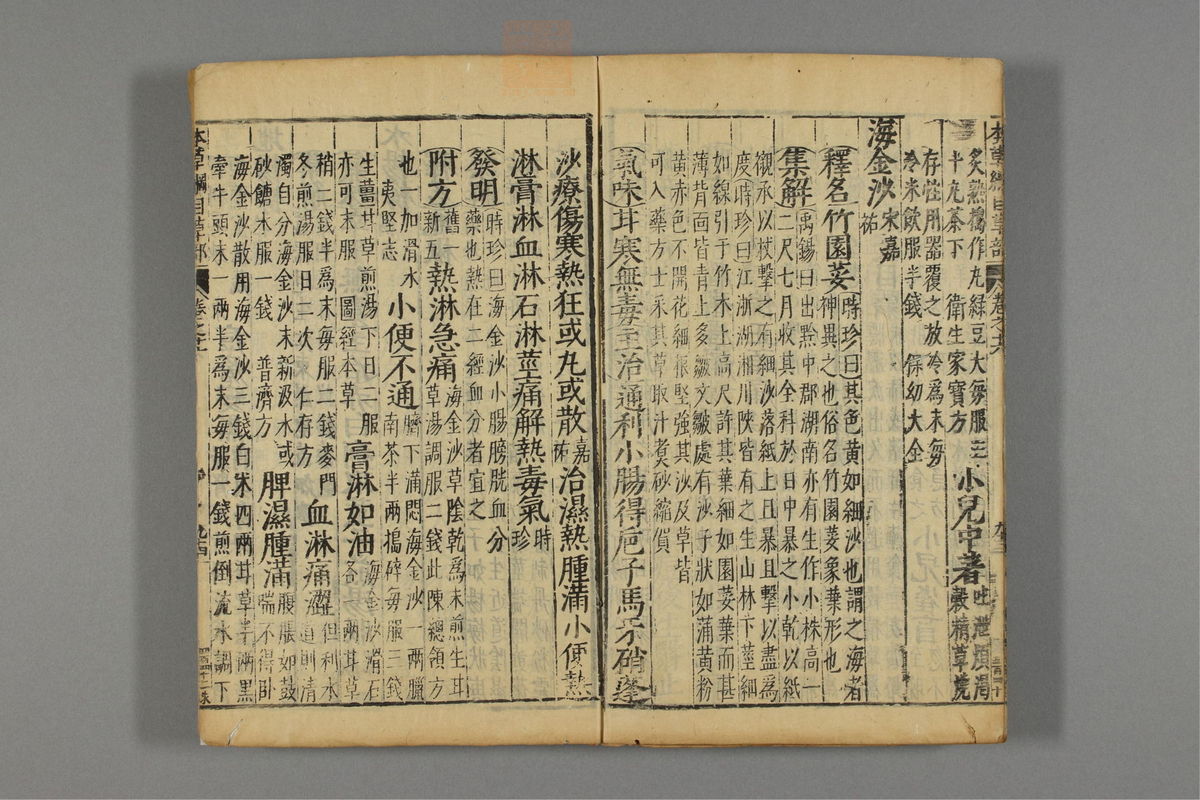 本草綱目草部　卷之十六
炙熟擣作丸綠豆大每服三
十丸茶下　衛生家寶方
小兒中暑
吐泄煩渴
穀精草燒
存性用器覆之放冷為末每
冷米飲服半錢　保幼大全
海金沙宋嘉祐
釋名竹園荽
時珍曰其色黃如細沙也謂之海者
神異之也俗名竹園荽象葉形也
集解
禹錫曰出黔中郡湖南亦有生作小株高一
二尺七月收其全科於日中暴之小乾以紙
襯承以杖擊之有細沙落紙上且暴且擊以盡爲
度時珍曰江浙湖湘川陝皆有之生山林下莖細
如線引于竹木上高尺許其葉細如園荽葉而甚
薄背面皆青上多皺文皺處有沙子狀如蒲黃粉
黃赤色不開花細根堅強其沙及草皆
可入藥方士采其草取汁煮砂縮賀
氣味甘寒無毒主治通利小腸得梔子馬牙硝蓬
沙療傷寒熱狂或丸或散嘉祐治濕熱腫滿小便熱
淋膏淋血淋石淋莖痛解熱毒氣時珍
發明
時珍曰海金沙小腸膀胱血分
藥也熱在二經血分者宜之
附方
舊一
新五
熱淋急痛
海金沙草陰乾爲末煎生甘
草湯調服二錢此陳總領方
也一加滑水
夷堅志
小便不通
臍下滿悶海金沙一兩臘
南茶半兩搗碎每服三錢
生薑甘草煎湯下日二服
亦可末服　圖經本草
膏淋如油
海金沙滑石
各一兩甘草
稍二錢半爲末每服二錢麥門
冬煎湯服日二次　仁存方
血淋痛澀
但利水
道則清
濁自分海金沙末新汲水或
砂餹水服一錢　普濟方
脾濕腫滿
腹脹如鼓
喘不得臥
海金沙散用海金沙三錢白朮四兩甘草半兩黑
牽牛頭末一兩半爲末每服一錢煎倒流水調下
本草綱目草部　卷之十六